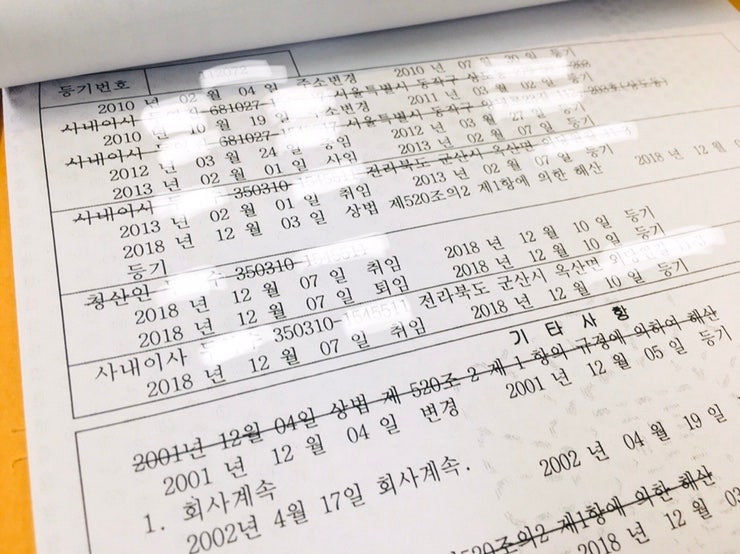 등기번호
2010 년 02 월 04 일 주소변경 2010 년 07 월 30 일 등기
사내이사 681027- 서울특별시 동작구
2010 년 10 월 19 일 주소변경 2011 년 03 월 02 일 등기
사내이사 681027- 서울특별시 동작구
2012 년 03 월 24 일 중임 2012 년 03 월 27 일 등기
2013 년 02 월 01 일 사임 2013 년 02 월 07 일 등기
사내이사 350310- 전라북도 군산시 옥산면
2013 년 02 월 01 일 취임 2013 년 02 월 07 일 등기
2018 년 12 월 03 일 상법 제520조의2 제1항에 의한 해산 2018 년 12 월
등기
청산인 수 350310-
2018 년 12 월 07 일 취임 2018 년 12 월 10 일 등기
2018 년 12 월 07 일 퇴임 2018 년 12 월 10 일 등기
사내이사 350310- 전라북도 군산시 옥산면
2018 년 12 월 07 일 취임 2018 년 12 월 10 일 등기
기 타 사 항
2001년 12월 04일 상법 제 520조 2 제 1 항의 규정에 의하여 해산
2001 년 12 월 04 일 변경 2001 년 12 월 05 일 등기
1. 회사계속
2002년 4월 17일 회사계속. 2002 년 04 월 19 일
제1항에 의한 해산
2018 년 12 월 03